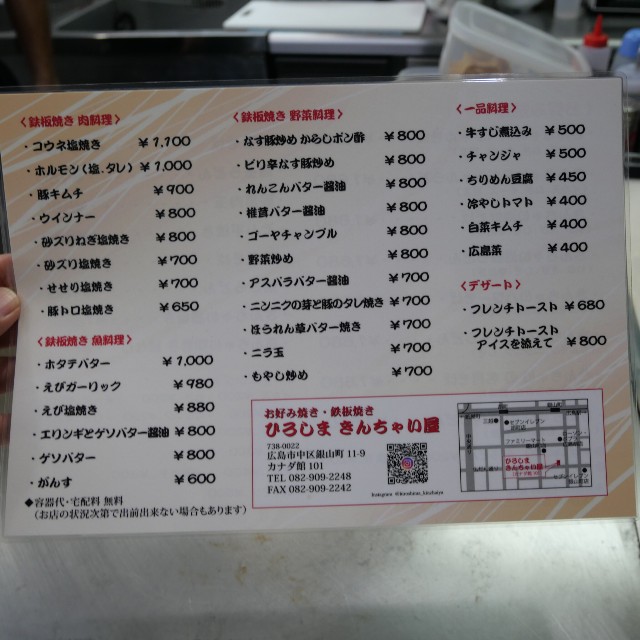 〈鉄板焼き 肉料理〉
・コウネ塩焼き ¥1,100
・ホルモン(塩.タレ) ¥1,000
・豚キムチ ¥900
・ウインナー ¥800
・砂ズリねぎ塩焼き ¥800
・砂ズリ塩焼き ¥700
・せせり塩焼き ¥700
・豚トロ塩焼き ¥650
〈鉄板焼き 魚料理〉
・ホタテバター ¥1,000
・えびガーリック ¥980
・えび塩焼き ¥880
・エリンギとゲソバター醤油 ¥800
・ゲソバター ¥800
・がんす ¥600
◆容器代・宅配料 無料
(お店の状況次第で出前出来ない場合もあります)
〈鉄板焼き 野菜料理〉
・なす豚炒め からしポン酢 ¥800
・ピリ辛なす豚炒め ¥800
・れんこんバター醤油 ¥800
・椎茸バター醤油 ¥800
・ゴーヤチャンプル ¥800
・野菜炒め ¥800
・アスパラバター醤油 ¥700
・ニンニクの芽と豚のタレ焼き ¥700
・ほうれん草バター焼き ¥700
・ニラ玉 ¥700
・もやし炒め ¥700
〈一品料理〉
・牛すじ煮込み ¥500
・チャンジャ ¥500
・ちりめん豆腐 ¥450
・冷やしトマト ¥400
・白菜キムチ ¥400
・広島菜 ¥400
〈デザート〉
・フレンチトースト ¥680
・フレンチトースト
アイスを添えて ¥800
お好み焼き・鉄板焼き
ひろしま きんちゃい屋
738-0022
広島市中区銀山町 11-9
カナダ館 101
TEL 082-909-2248
FAX 082-909-2242
Instagram @hiroshima_kinchaiya
セブンイレブン
ファミリーマート
ひろしま
きんちゃい屋
セブンイレブン